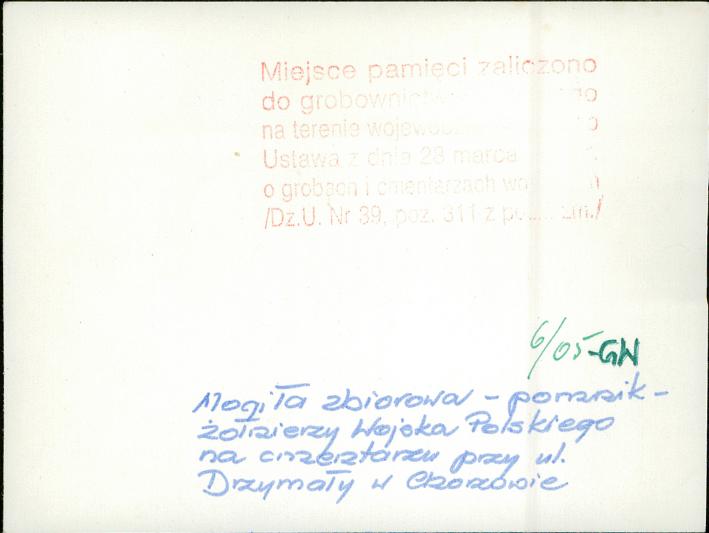 Miejsce pamięci zaliczono
do
na terenie
Ustawa z dnia 28 marca
o grobach i cmentarzach
/Dz.U. Nr 39, poz. 311 z zm./
6/05-GW
Mogiła zbiorowa - pomnik -
żołnierzy Wojska Polskiego
na cmentarzu przy ul.
Drzymały w Chorzowie